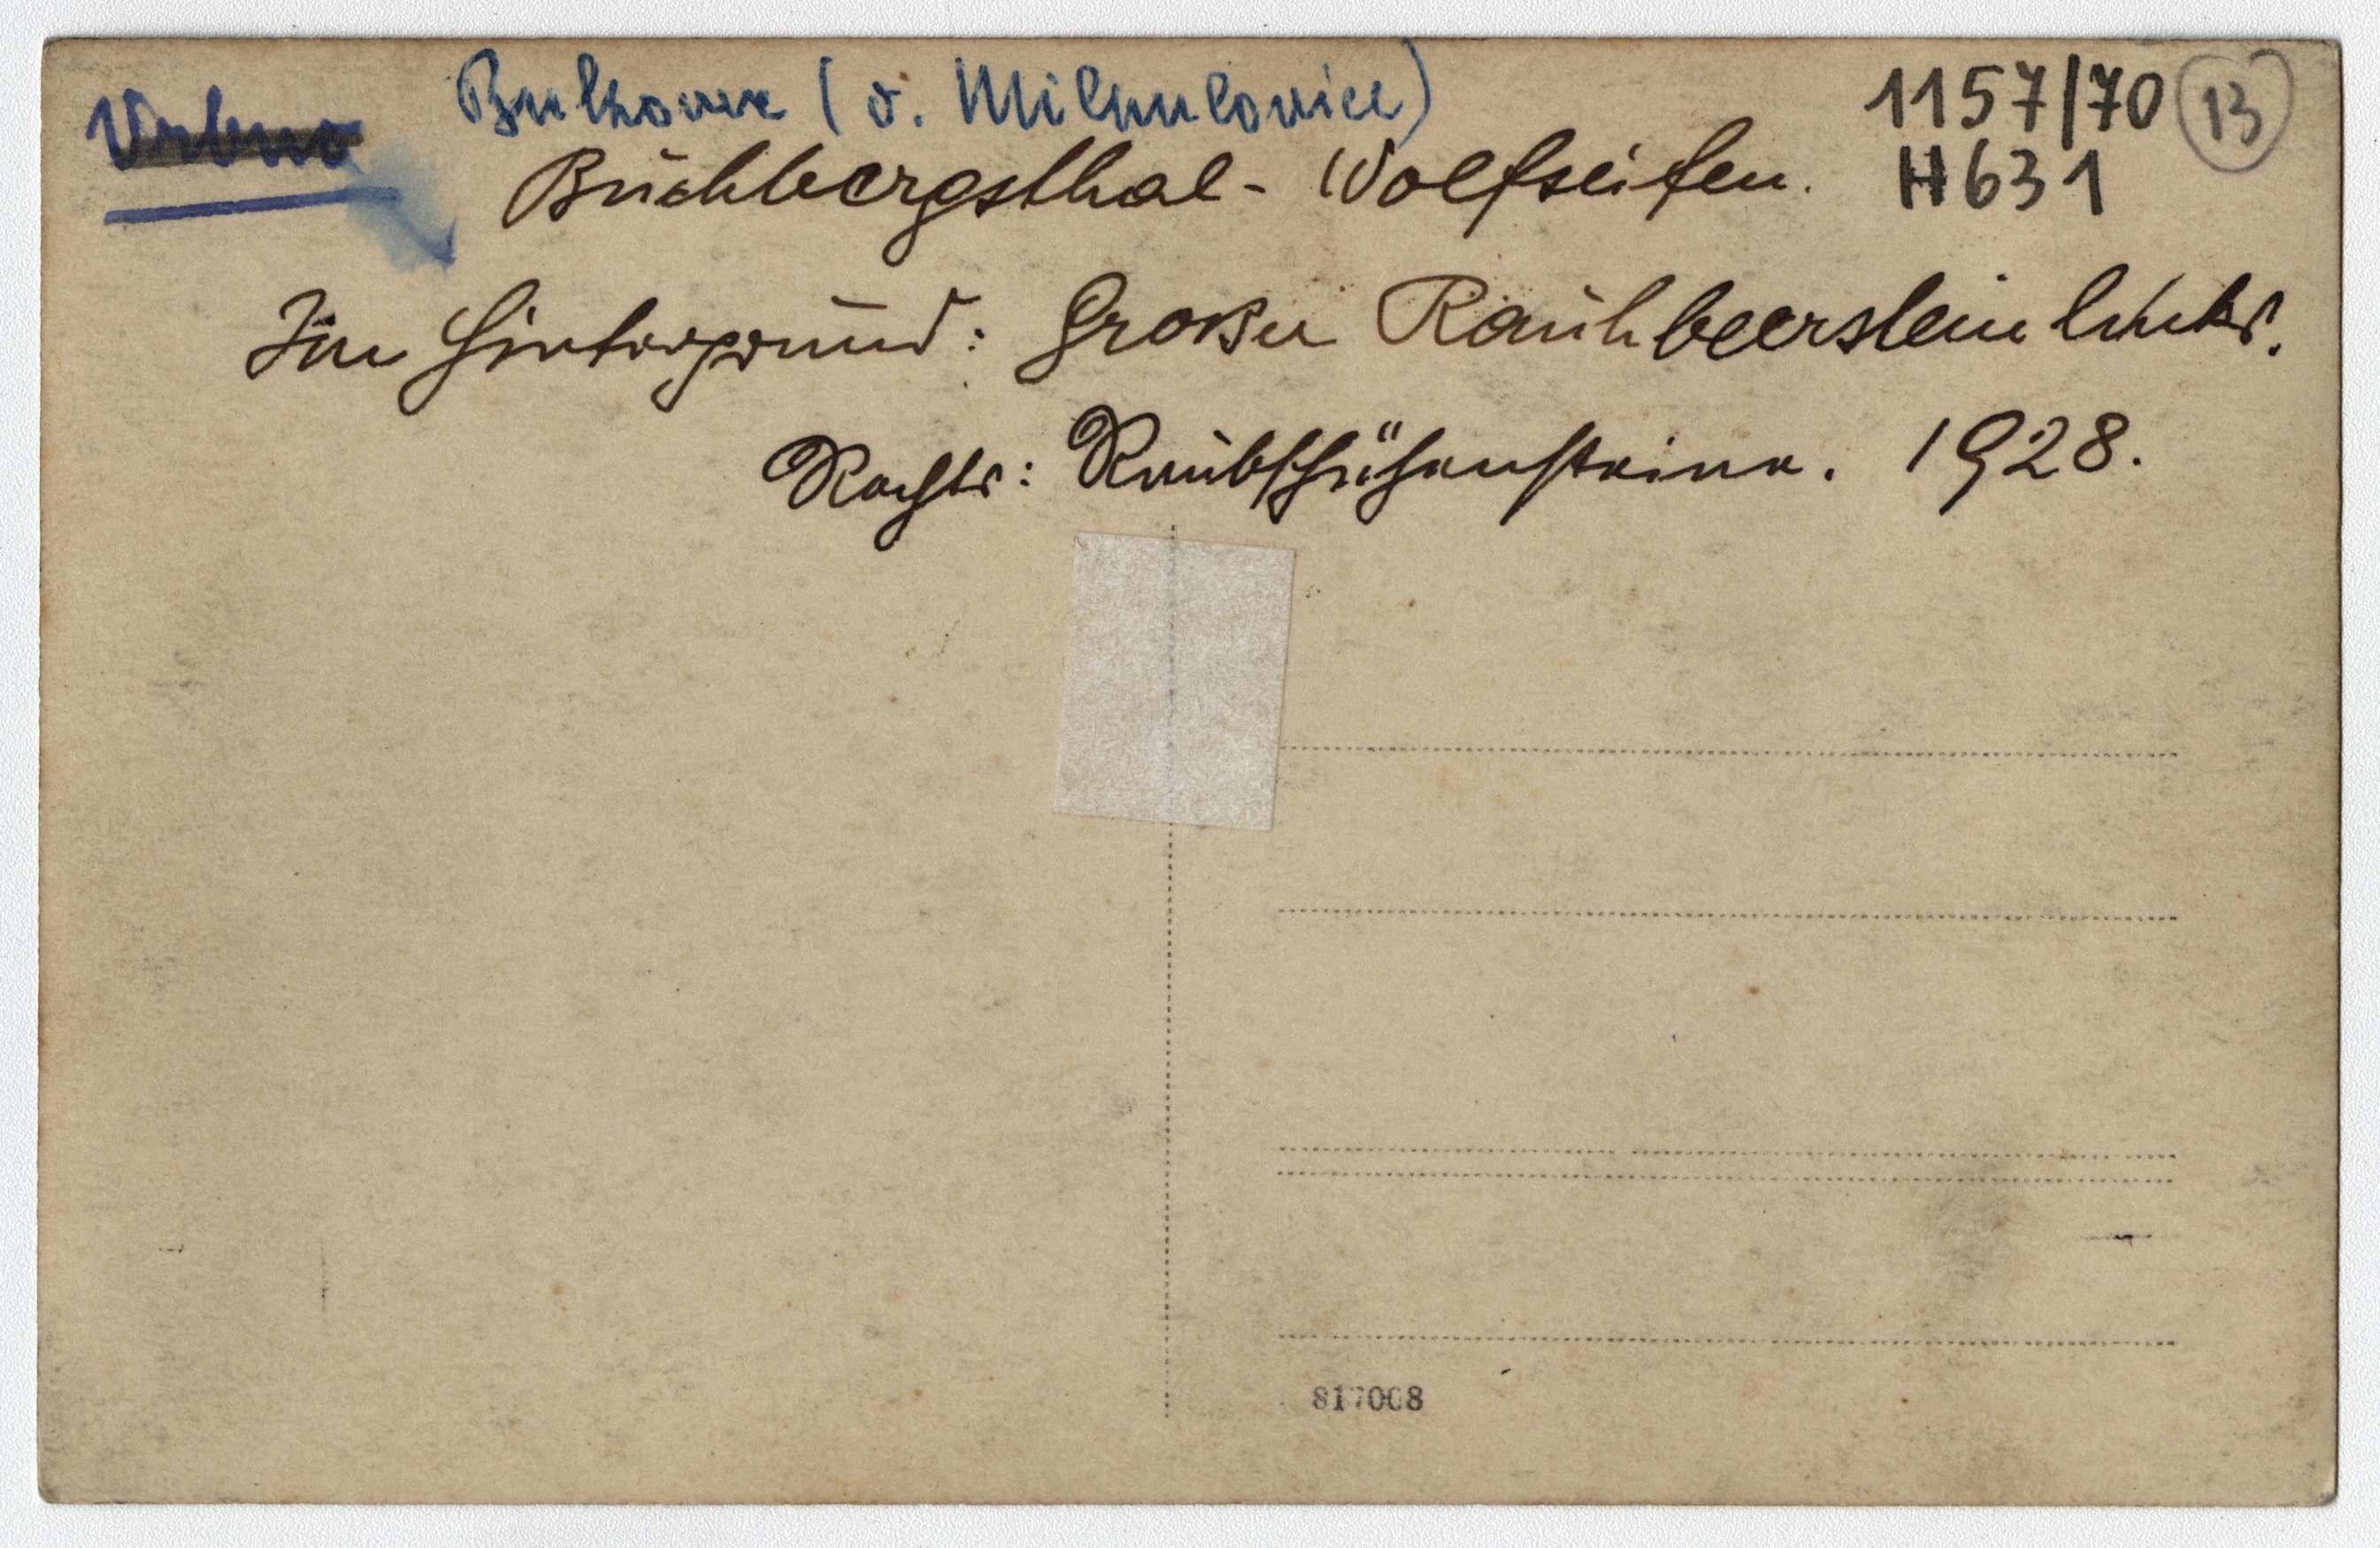 Vrbno
Bukovice (o. Mikulovice)
1157/70 13
Buchbergsthal - Wolfseifen. H631
Im Hintergrund: Großer Rauhbeerstein links.
Rechts: Raubschützensteine. 1928.
817008